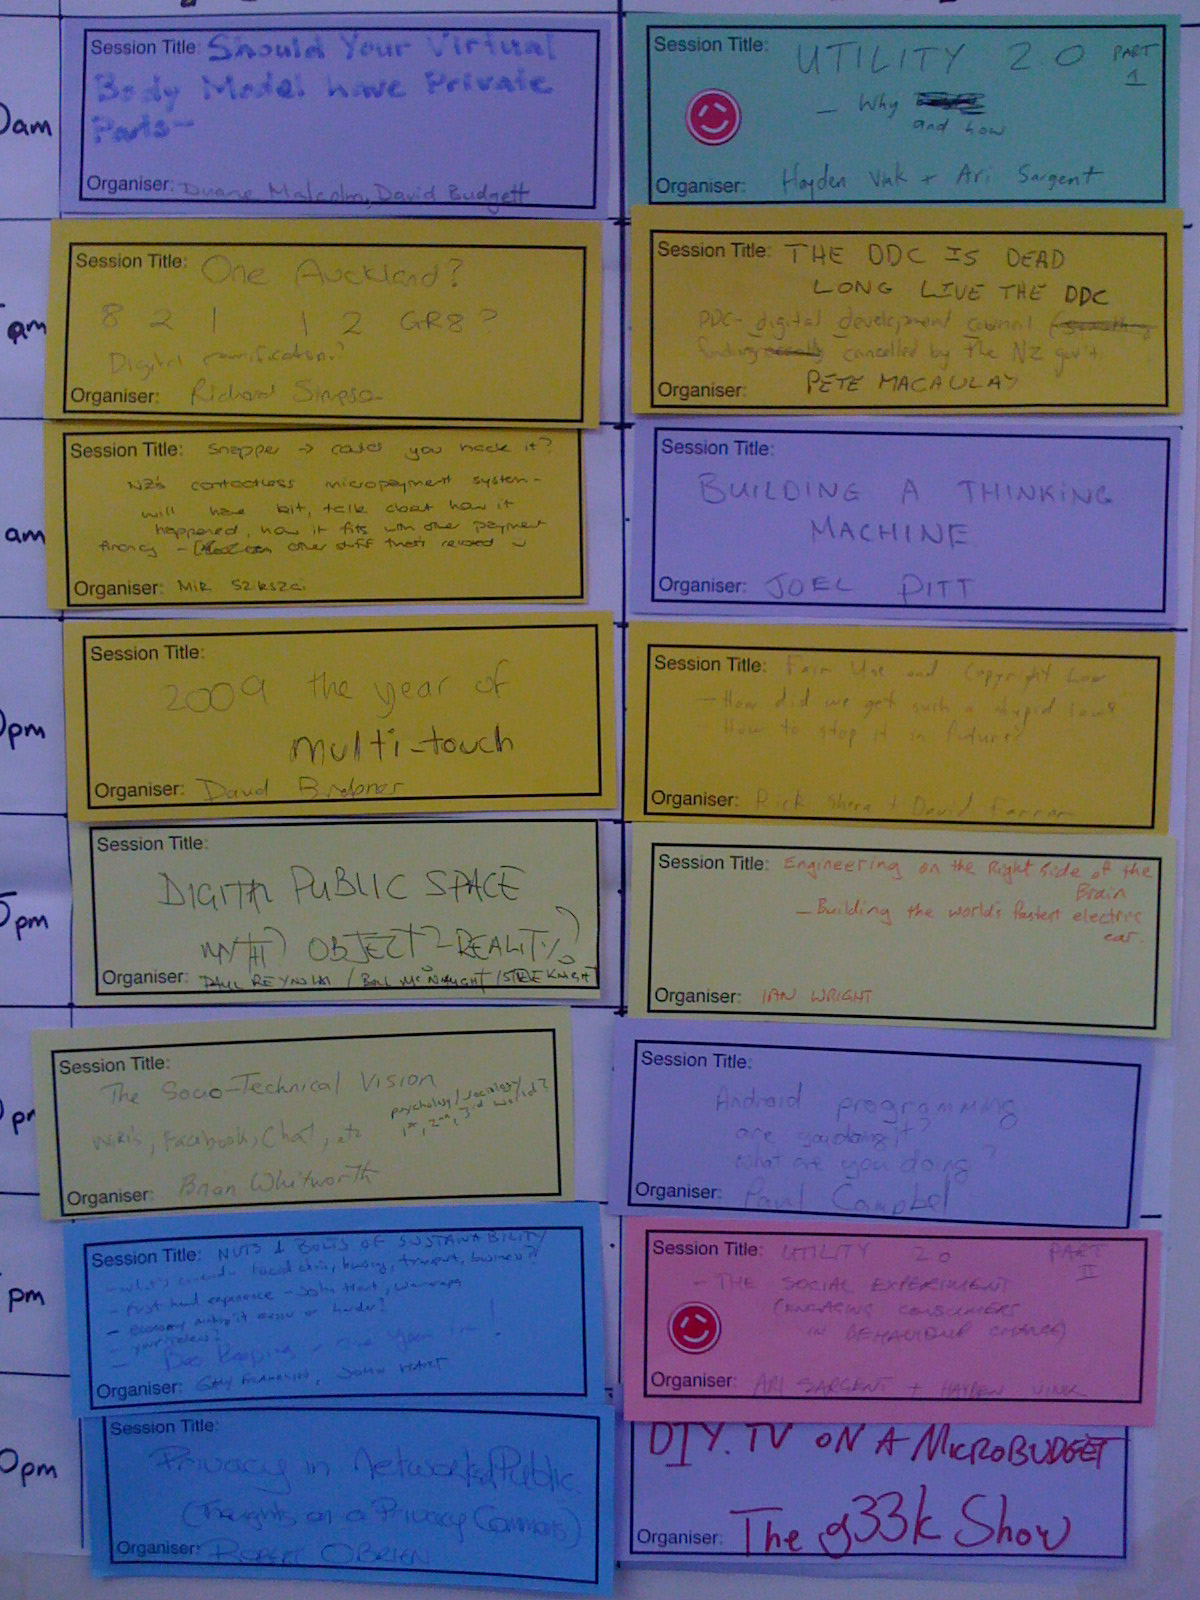 0am
Session Title: Should Your Virtual
Body Model have Private
Parts-
Organiser: Duane Malcolm, David Budgett
Session Title: UTILITY 2.0 PART
1
- Why
and how
Organiser: Hayden Vink + Ari Sargent
am
Session Title: One Auckland?
8 2 1 1 2 GR8?
Digital
Organiser: Richard Simpson
Session Title: THE DDC IS DEAD
LONG LIVE THE DDC
DDC- digital development council
funding cancelled by the NZ gov't.
Organiser: PETE MACAULAY
am
Session Title: Snapper → could you hack it?
NZ's contactless micropayment system-
will have kit, talk about how it
happened, how it fits with other payment
other stuff that's
Organiser: MIK SZIKSZAI
Session Title:
BUILDING A THINKING
MACHINE
Organiser: JOEL PITT
pm
Session Title:
2009 the year of
multi-touch
Organiser: David Brebner
Session Title: Fair Use and Copyright Law
- How did we get such a stupid law &
How to stop it in future?
Organiser: Rick Shera + David Farrar
5pm
Session Title:
DIGITAL PUBLIC SPACE
MYTH? OBJECT? REALITY?
Organiser: PAUL REYNOLDS / BILL McNAUGHT / STEVE KNIGHT
Session Title: Engineering on the Right Side of the
Brain
- Building the world's fastest electric
car.
Organiser: IAN WRIGHT
Session Title:
The Socio-Technical Vision
psychology/sociology
1st, 2nd, 3rd world?
Wikis, Facebook, Chat, etc
Organiser: Brian Whitworth
Session Title:
Android programming
are you doing it?
What are you doing?
Organiser: Paul Campbell
pm
Session Title: NUTS & BOLTS OF SUSTAINABILITY
housing, transport, business?
- first hand experience - John Hart,
- economy making it easier or harder?
-
- Bee Keeping
Organiser: JOHN HART
Session Title: UTILITY 2.0 PART
II
- THE SOCIAL EXPERIMENT
(ENGAGING CONSUMERS
IN BEHAVIOUR CHANGE)
Organiser: ARI SARGENT + HAYDEN VINK
0pm
Session Title:
Privacy in Networked Public
(Thoughts on a Privacy Commons)
Organiser: ROBERT O'BRIEN
DIY.TV ON A MICROBUDGET
Organiser: The g33k Show